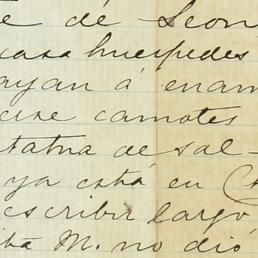 de Leon,
casa huespedes
ayan á enam
camotes
tatua de sal-
ya está en
escribir largo,
M. no dió